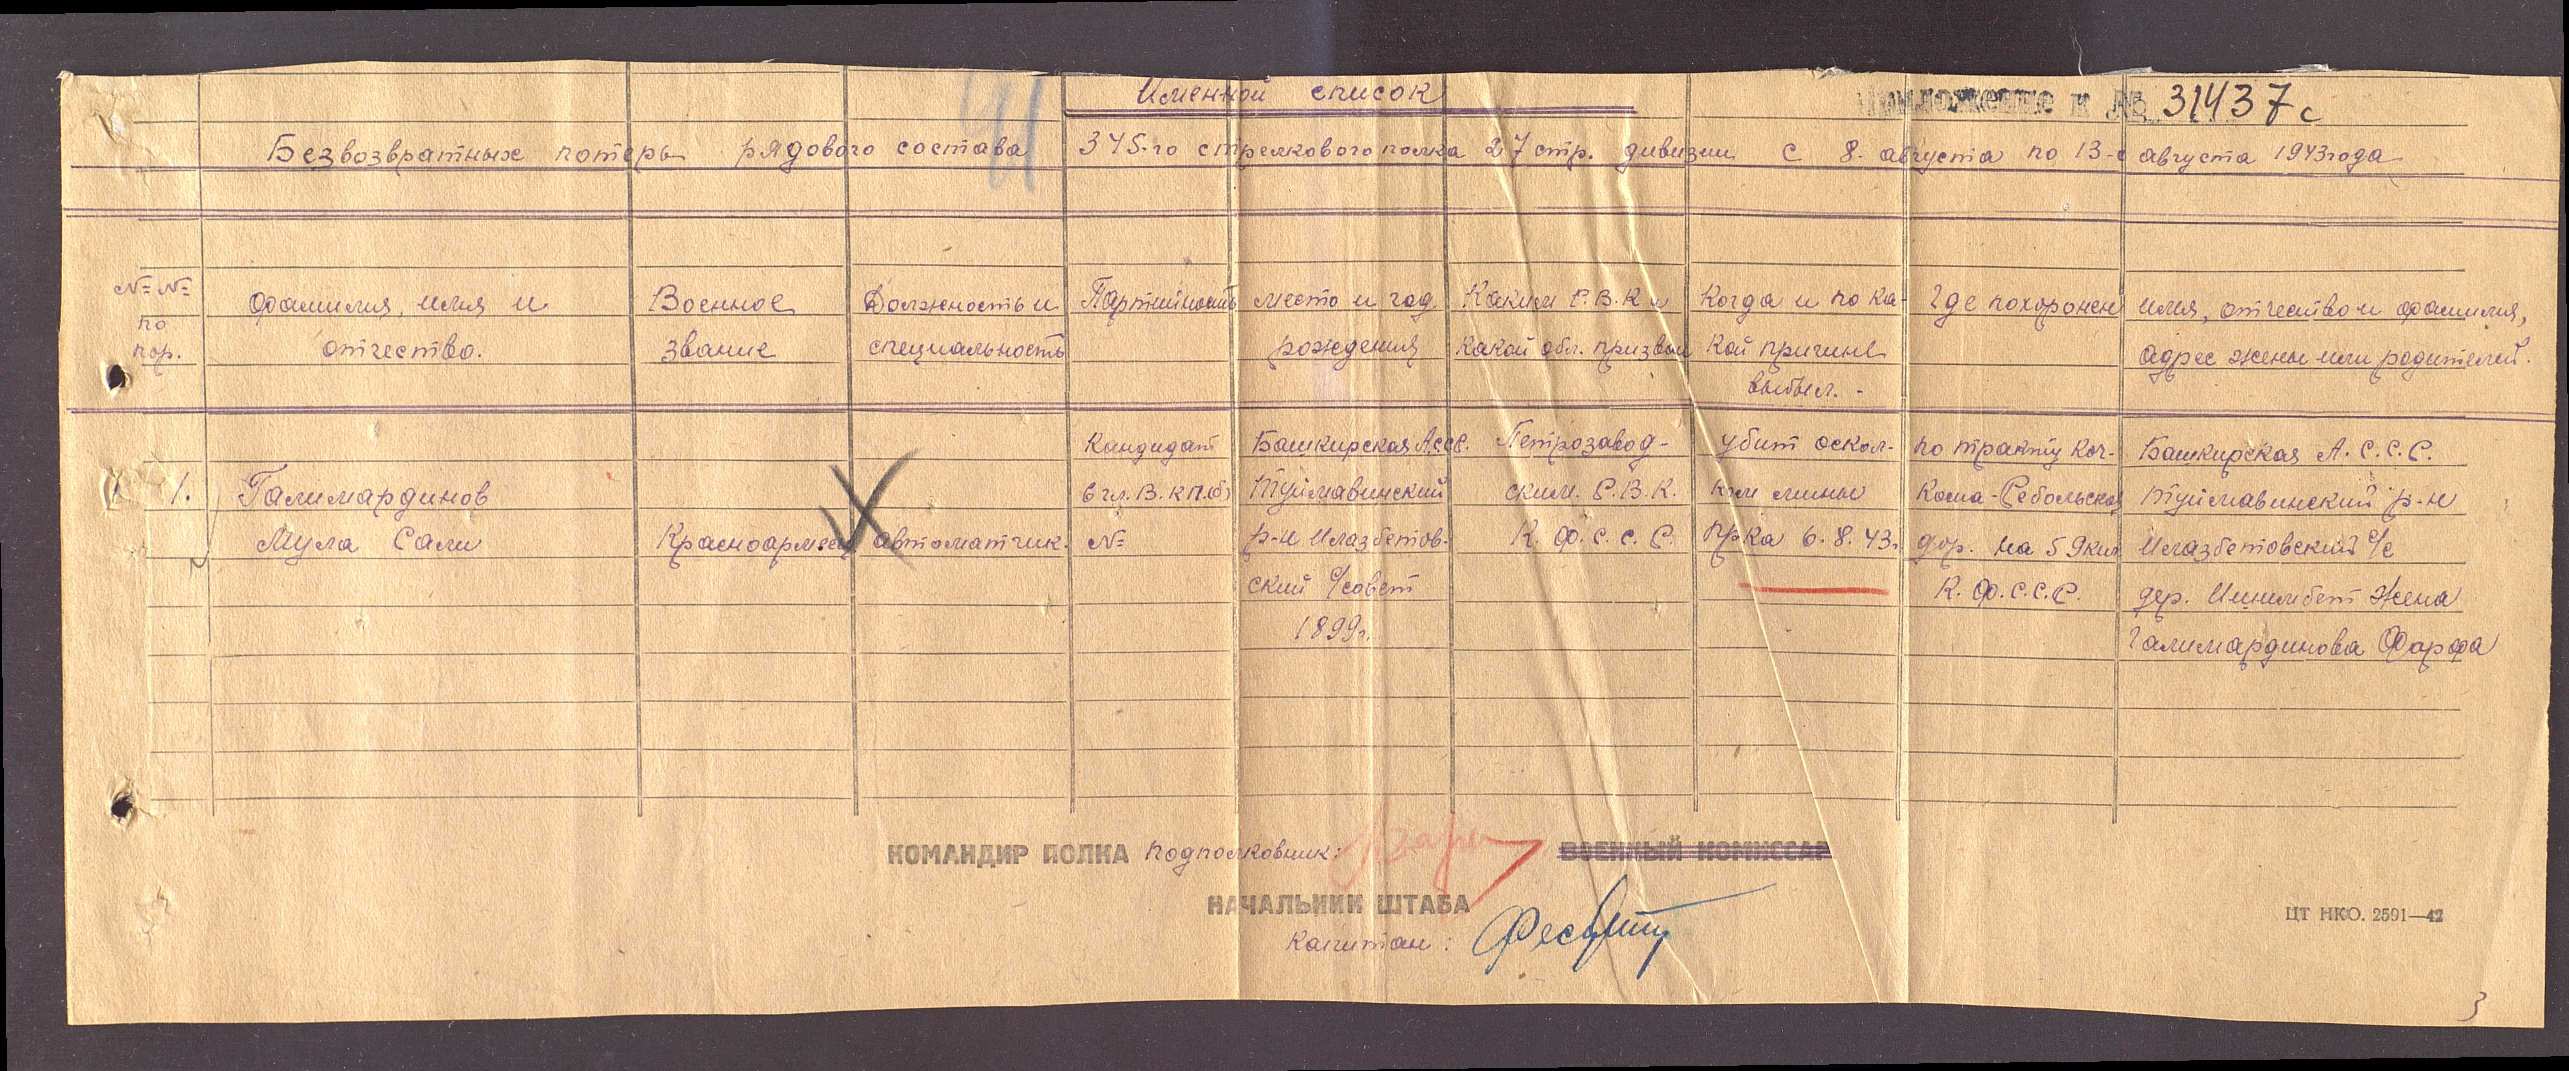 Именной список
Приложение к № 31437с
Безвозвратных потерь рядового состава 345-го стрелкового полка 27 стр. дивизии с 8. августа по 13-е августа 1943 года
№ № по пор.
Фамилия, имя и отчество.
Военное звание
Должность и специальность
Партийность
место и год рождения
Каким Р.В.К и какой обл. призван
Когда и по какой причине выбыл. -
Где похоронен
имя, отчество и фамилия, адрес жены или родителей.
1.
Галимардинов
Мула Сали
Красноармеец
автоматчик.
Кандидат
в чл. В.К П.(б)
№
Башкирская А.ССС.
Туймавинский
р-н Илазбетов-
ский с/совет
1899г.
Петрозавод-
ским. Р.В.К.
К. Ф. С. С. Р.
убит оскол-
ком мины
6. 8. 43г.
по тракту Коч-
кома-Ребольская
дор. на 59 клм
К. Ф. С. С. Р.
Башкирская А. С. С. Р.
Туймавинский р-н
Илазбетовский с/с
дер. Ишимбет Жена
Галимардинова Фарфа
КОМАНДИР ПОЛКА подполковник:
ВОЕННЫЙ КОМИССАР
НАЧАЛЬНИК ШТАБА
Капитан:
ЦТ НКО. 2591—42
3